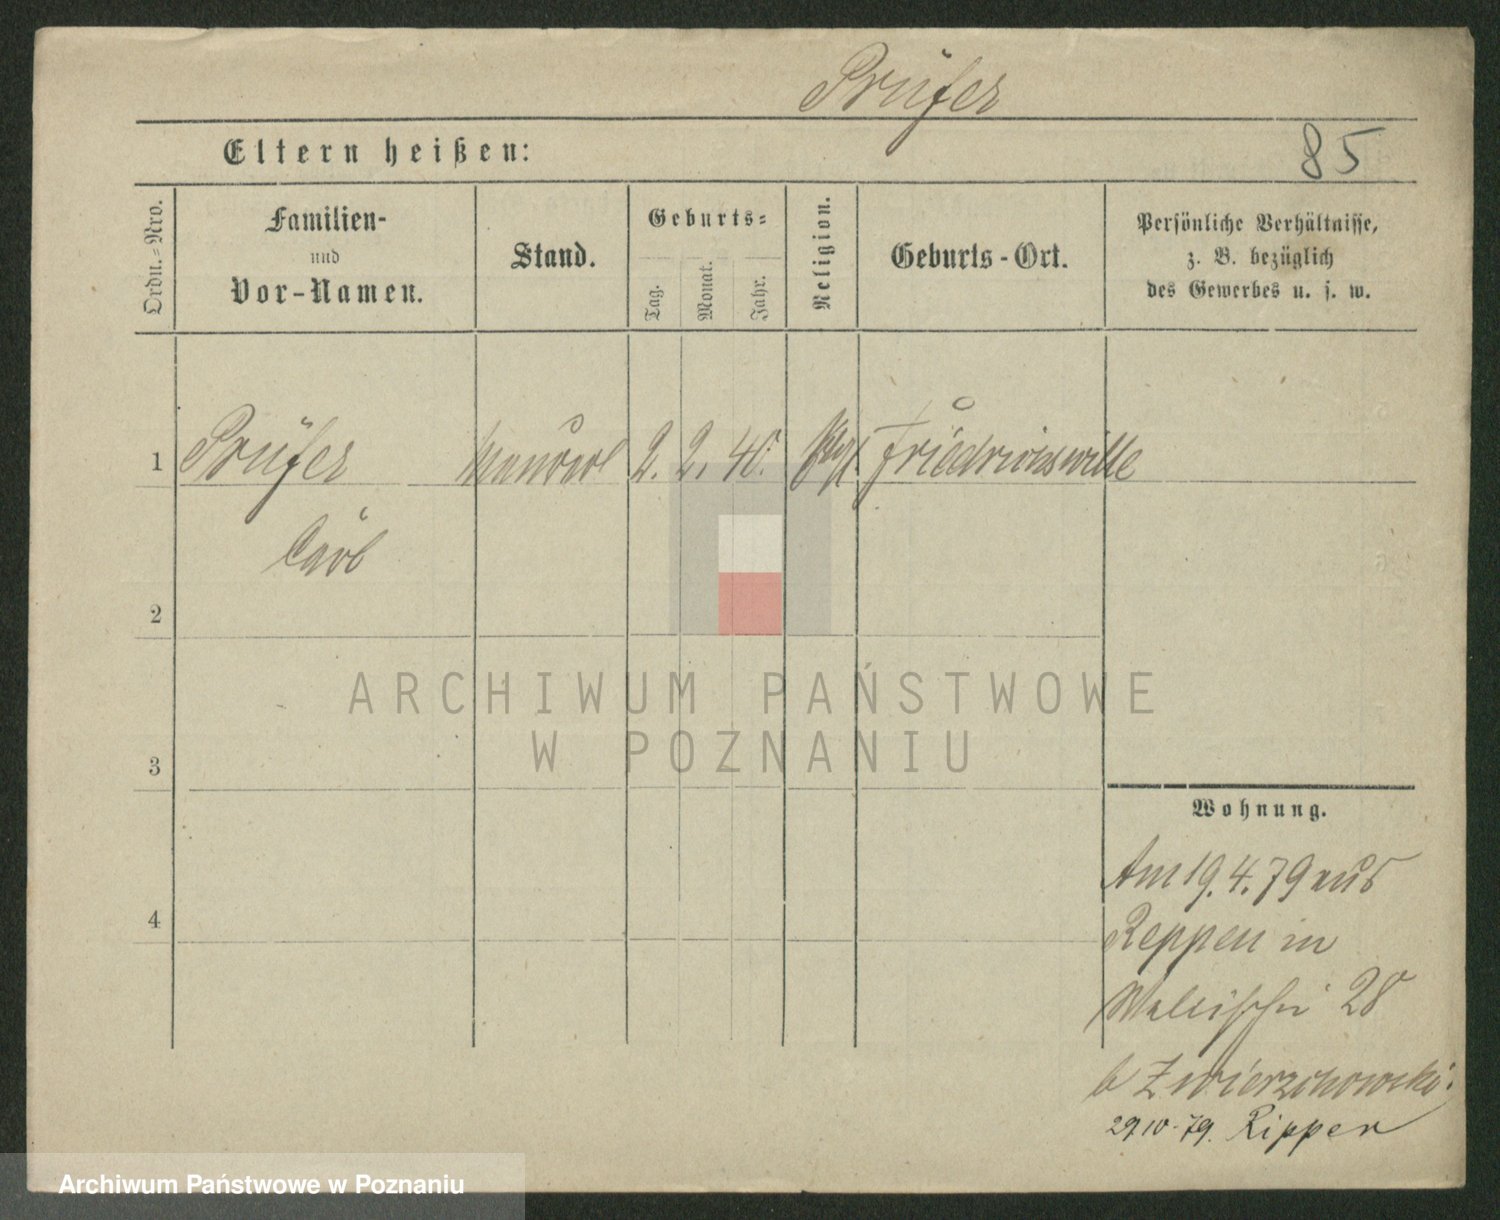 Prüfer
Eltern heißen:
85
Ordn.-Nro.
Familien-
und
Vor-Namen.
Stand.
Geburts-
Tag.
Monat.
Jahr.
Religion.
Geburts-Ort.
Persönliche Verhältnisse,
z. B. bezüglich
des Gewerbes u. s. w.
1 Prüfer 2. 2. 40. Friedrichswille
Carl
2
3
4
ARCHIWUM PAŃSTWOWE
W POZNANIU
Wohnung.
Am 19.4.79 aus
Reppen in
Wallischei 28
b Zwierzchowski.
79. Rippen
Archiwum Państwowe w Poznaniu